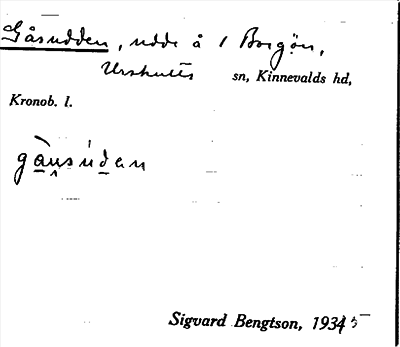 Gåsudden, udde å / Borgön,
Urshults sn, Kinnevalds hd,
Kronob. l.
gåusuden
Sigvard Bengtson, 1935